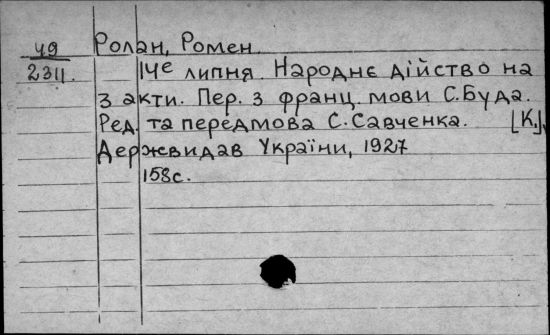 49 Ролан, Ромен.
2311. 14е липня. Народнє дійство на
3 акти. Пер. з франц. мови С. Буда.
Ред. та передмова С. Савченка. [К.],
Держвидав України, 1927
158с.